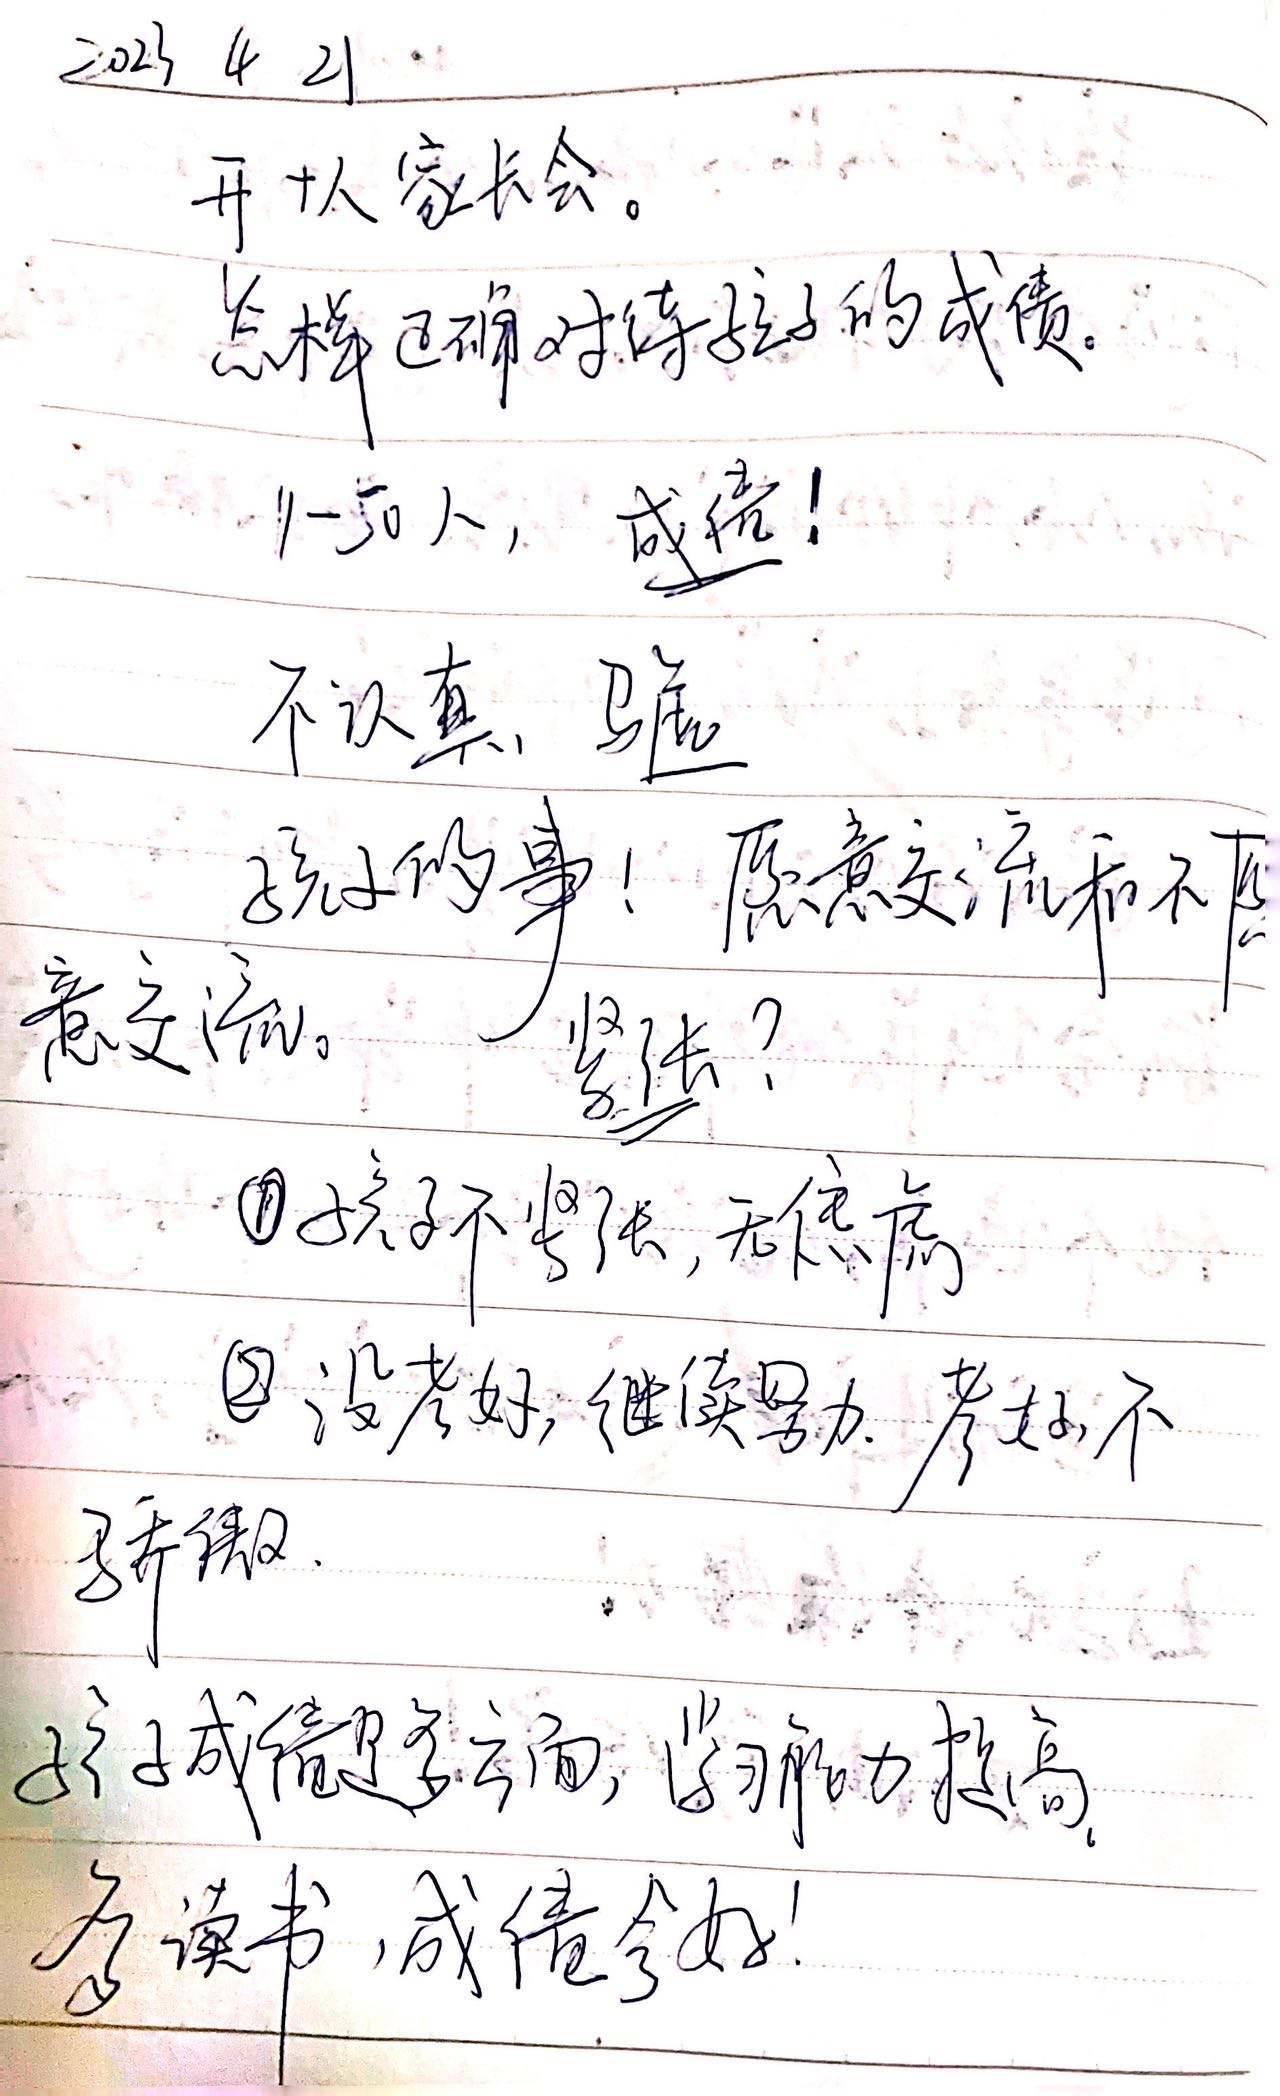 2023 4 21
开十人家长会。
怎样正确对待孩子的成绩。
11-50人，成绩！
不认真、马虎
孩子的事！愿意交流和不愿
意交流。 紧张？
①孩子不紧张，无焦虑
②没考好，继续努力. 考好不
骄傲.
孩子成绩是多方面，学习能力提高、
多读书，成绩会好！